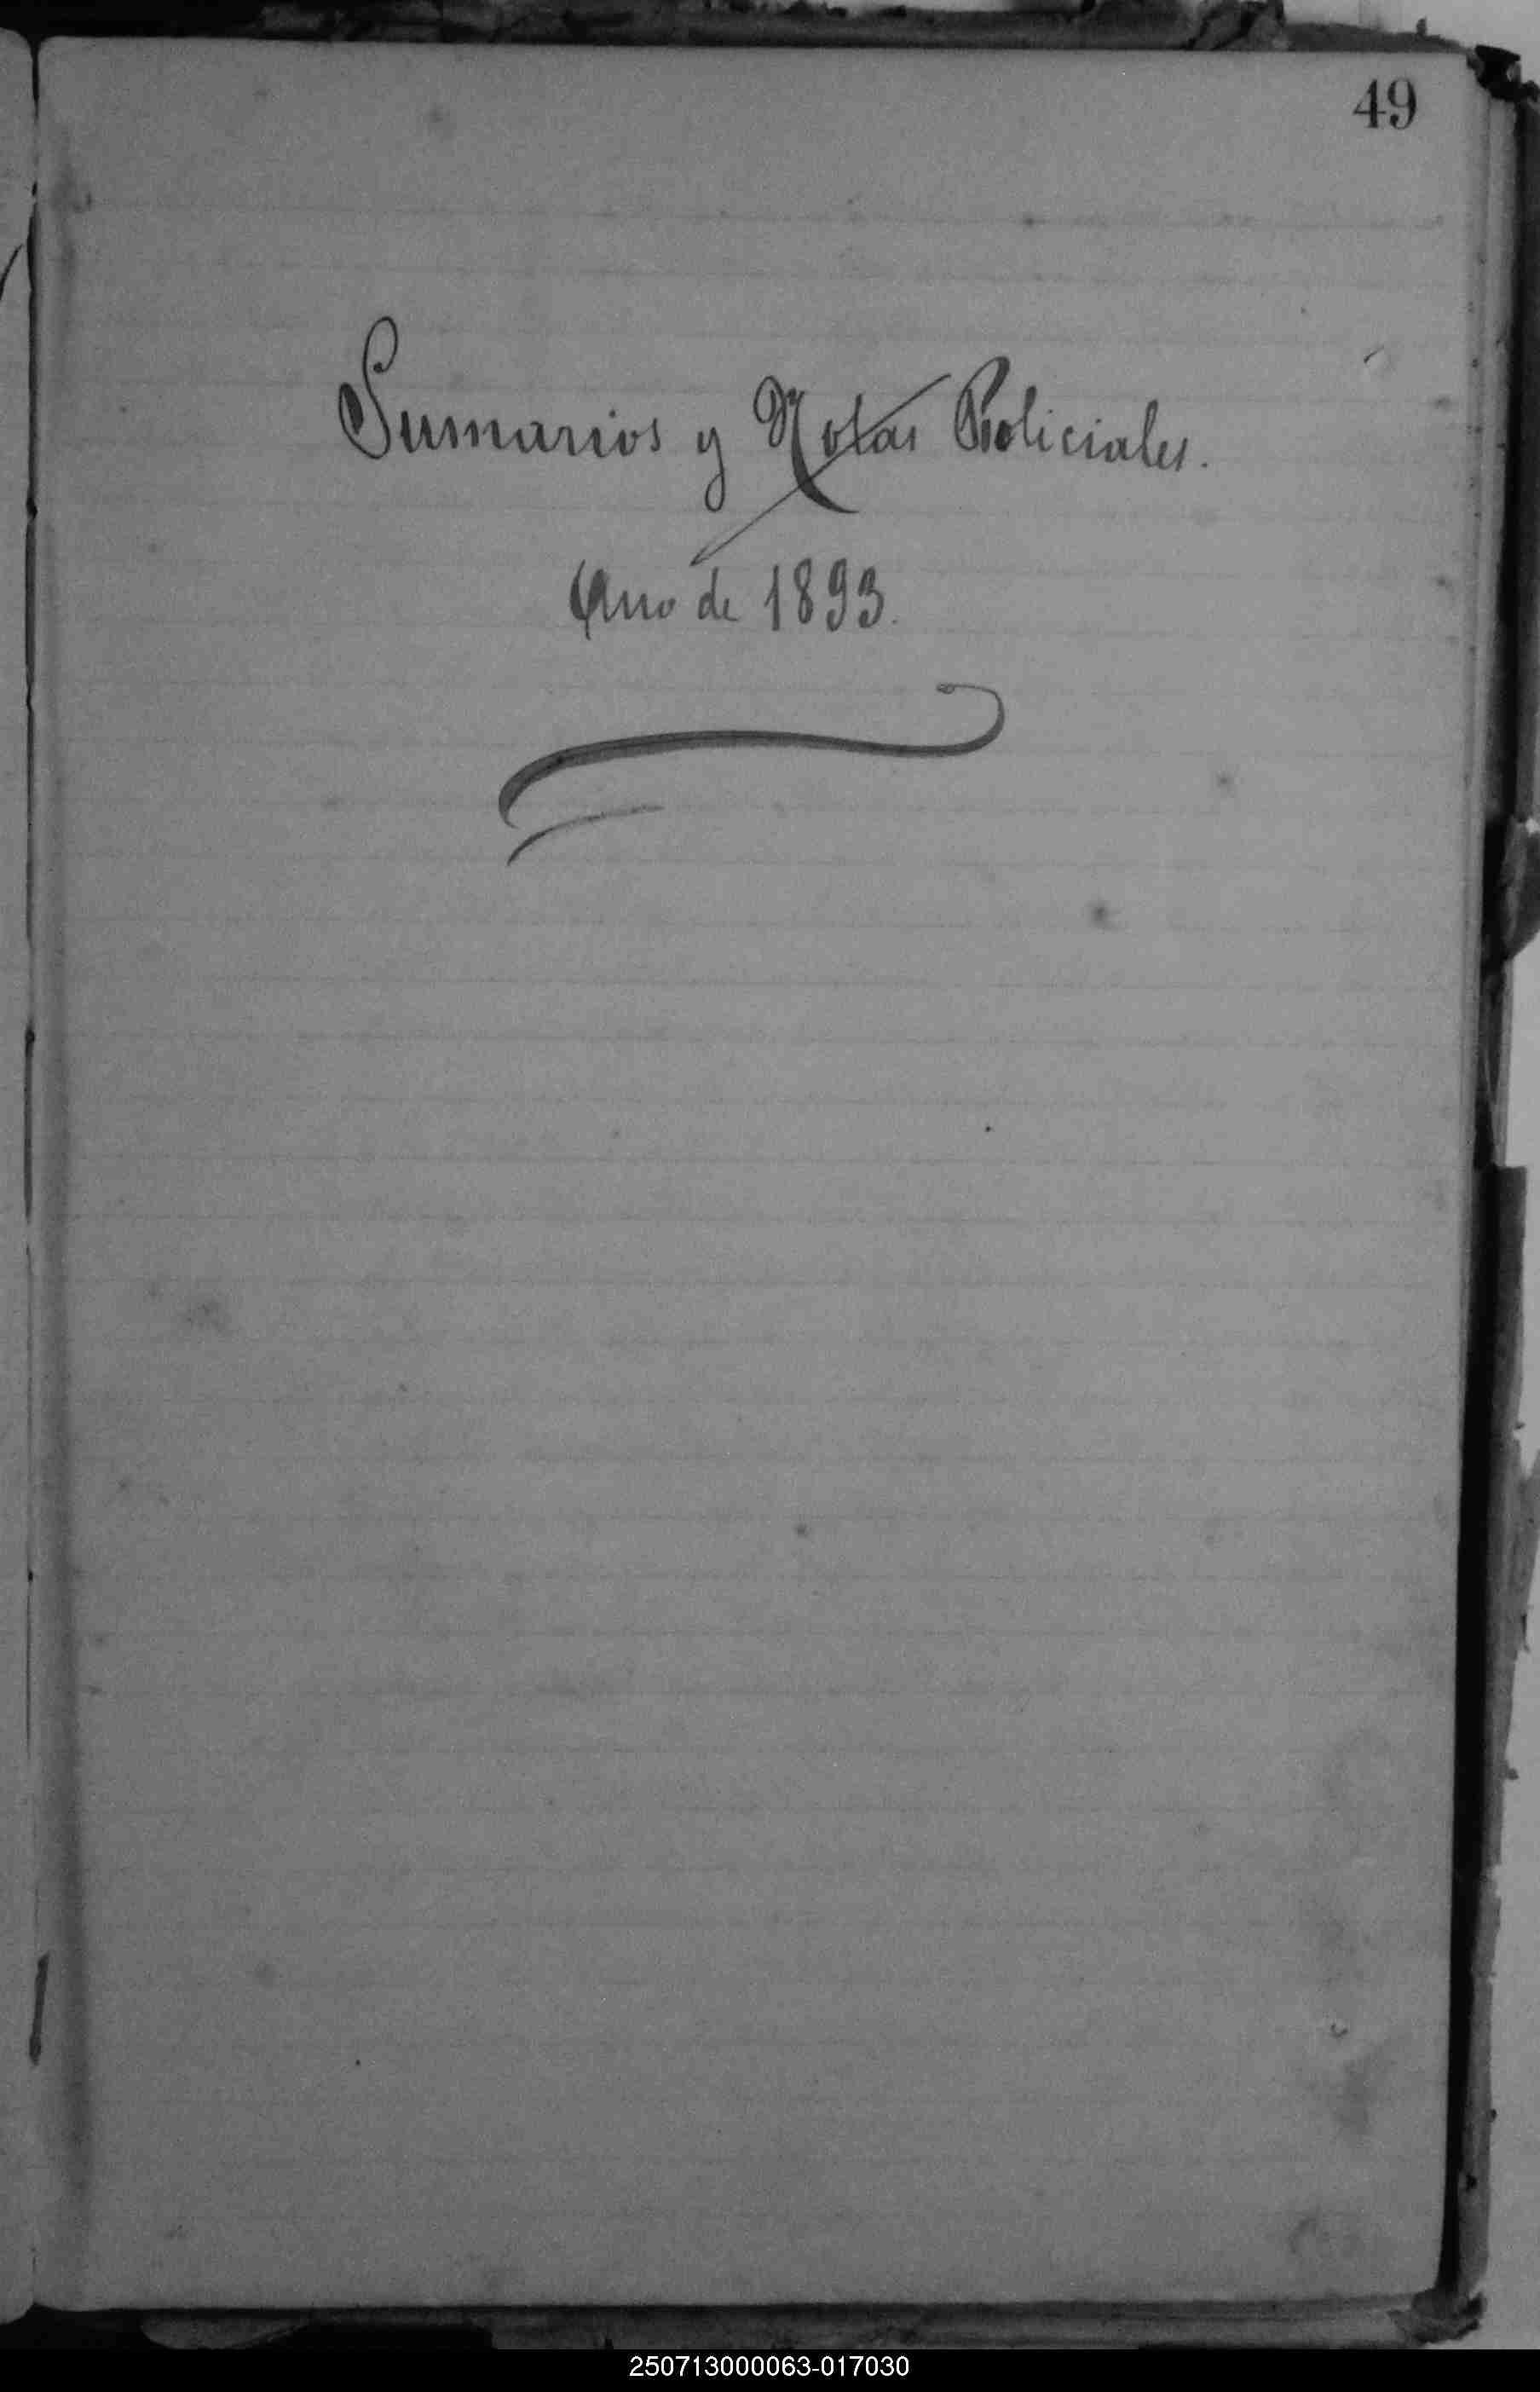 49
Sumarios y Notas Policiales.
Año de 1893.
250713000063-017030